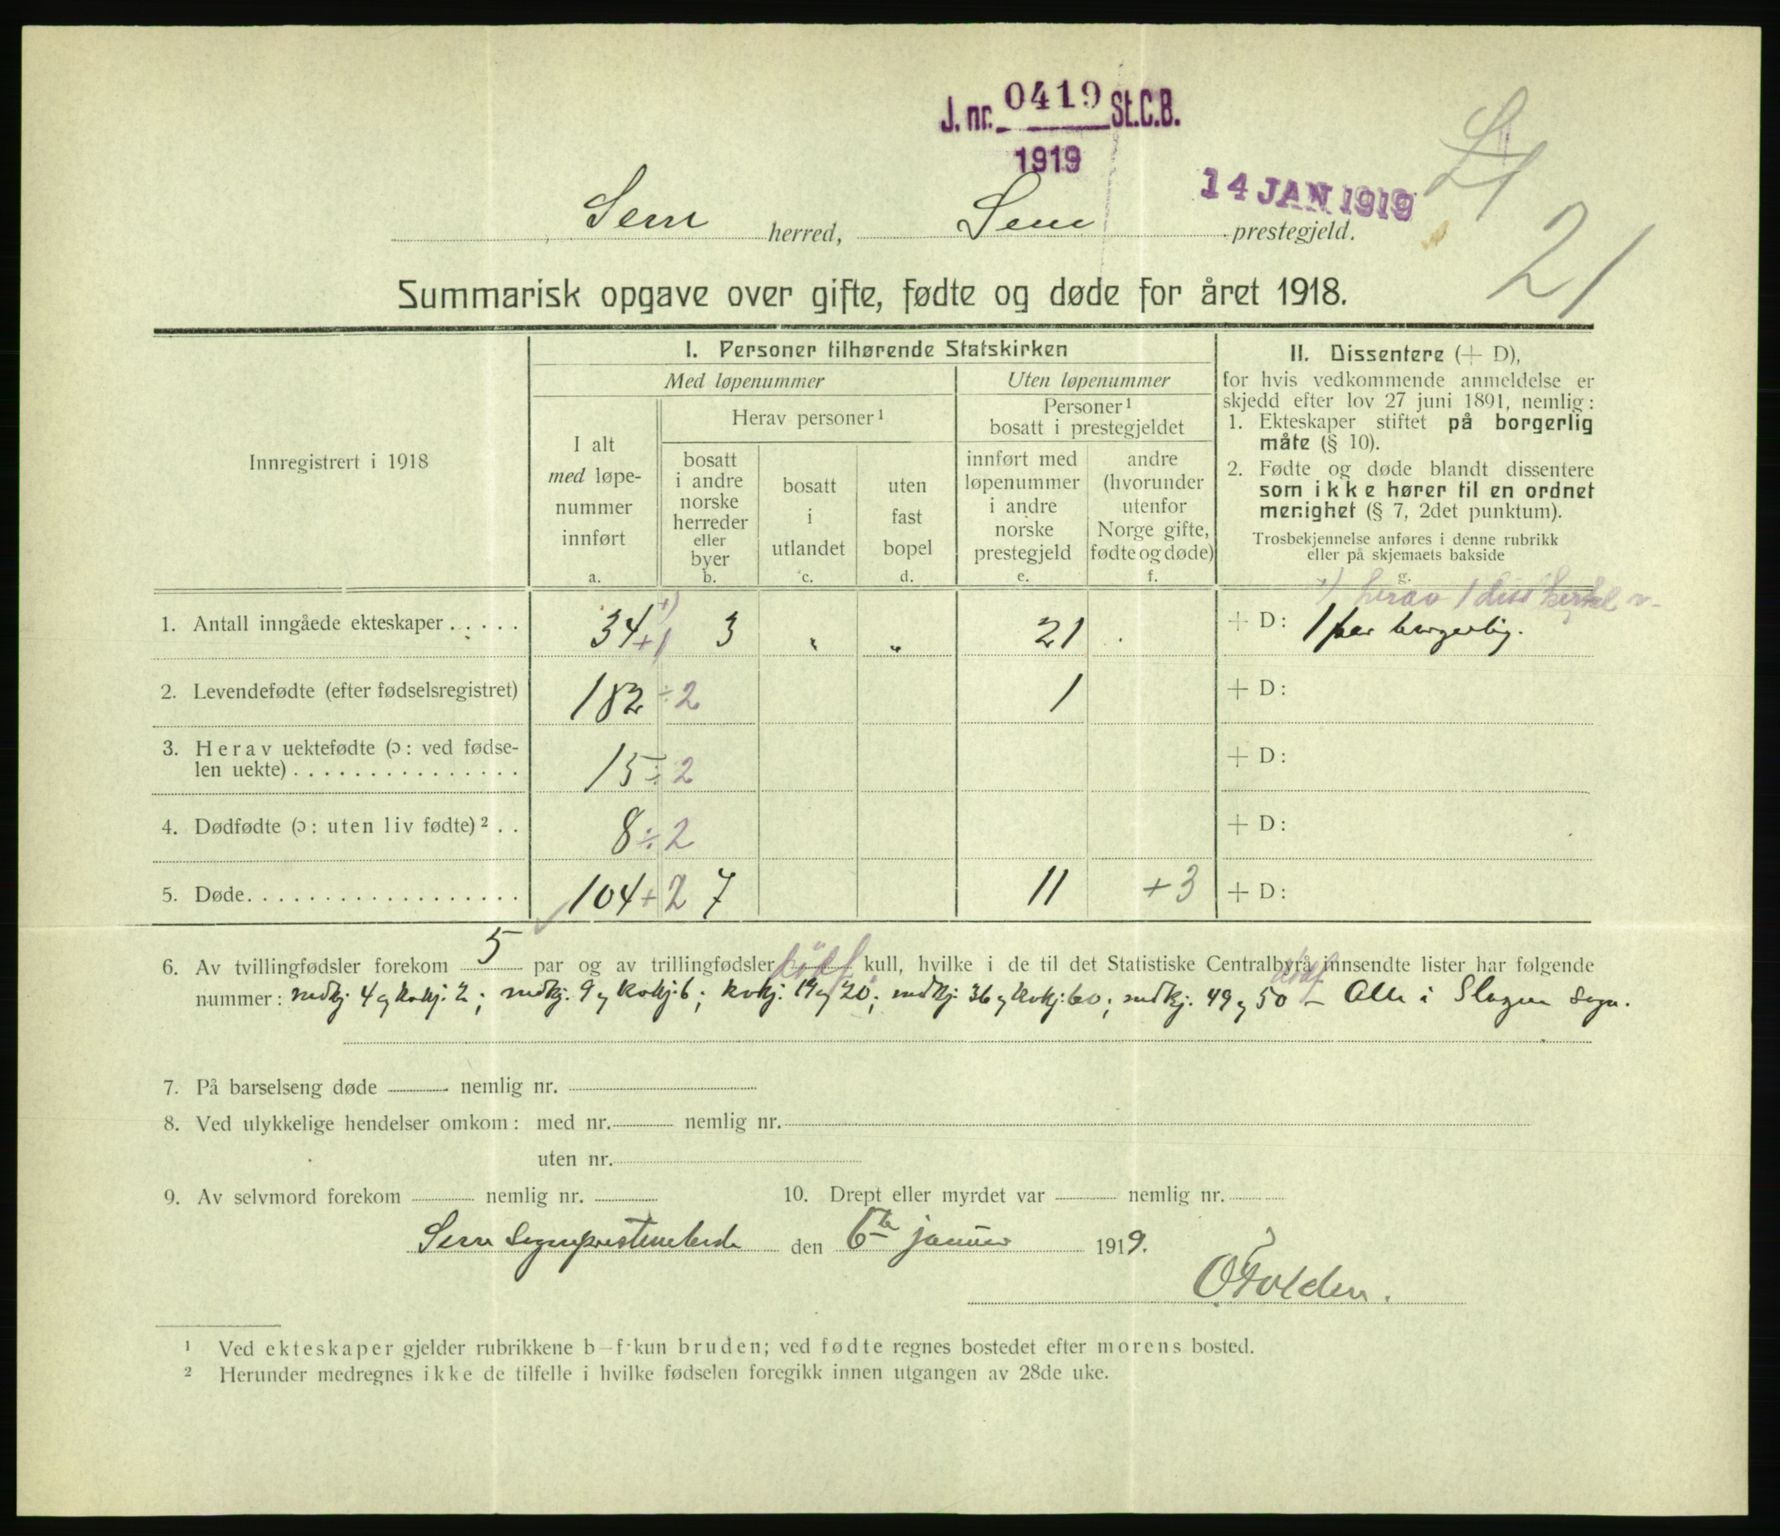 J. nr. 0419 St.C.B.
1919
14 JAN 1919
21
Sem herred, Sem prestegjeld.
Summarisk opgave over gifte, fødte og døde for året 1918.
Innregistrert i 1918
I. Personer tilhørende Statskirken
Med løpenummer
Uten løpenummer
I alt
med løpe-
nummer
innført
a.
Herav personer¹
bosatt
i andre
norske
herreder
eller
byer
b.
bosatt
i
utlandet
c.
uten
fast
bopel
d.
Personer¹
bosatt i prestegjeldet
innført med
løpenummer
i andre
norske
prestegjeld
e.
andre
(hvorunder
utenfor
Norge gifte,
fødte og døde)
f.
II. Dissentere (+ D),
for hvis vedkommende anmeldelse er
skjedd efter lov 27 juni 1891, nemlig:
1. Ekteskaper stiftet på borgerlig
måte (§ 10).
2. Fødte og døde blandt dissentere
som ikke hører til en ordnet
menighet (§ 7, 2det punktum).
Trosbekjennelse anføres i denne rubrikk
eller på skjemaets bakside
g.
x) herav 1
1. Antall inngåede ekteskaper . . . . . 34 +1 x) 3 " " 21 . + D: 1 par borgerlig.
2. Levendefødte (efter fødselsregistret) 182 ÷2 1 + D:
3. Herav uektefødte (ɔ: ved fødse-
len uekte) . . . . . . . . . . . . . . . 15 ÷2 + D:
4. Dødfødte (ɔ: uten liv fødte)² . . 8 ÷2 + D:
5. Døde. . . . . . . . . . . . . . . . . . 104 +2 7 11 +3 + D:
6. Av tvillingfødsler forekom 5 par og av trillingfødsler kull, hvilke i de til det Statistiske Centralbyrå innsendte lister har følgende
nummer: mdkj. 4 og kvkj. 2; mdkj. 9 og kvkj. 6; kvkj. 19 og 20; mdkj. 36 og kvkj. 60; mdkj. 49 og 50 – Alle i Slagen sogn.
7. På barselseng døde nemlig nr.
8. Ved ulykkelige hendelser omkom: med nr. nemlig nr.
uten nr.
9. Av selvmord forekom nemlig nr. 10. Drept eller myrdet var nemlig nr.
Sem Sogneprestembede den 6te januar 1919.
O Folden.
¹ Ved ekteskaper gjelder rubrikkene b–f kun bruden; ved fødte regnes bostedet efter morens bosted.
² Herunder medregnes ikke de tilfelle i hvilke fødselen foregikk innen utgangen av 28de uke.